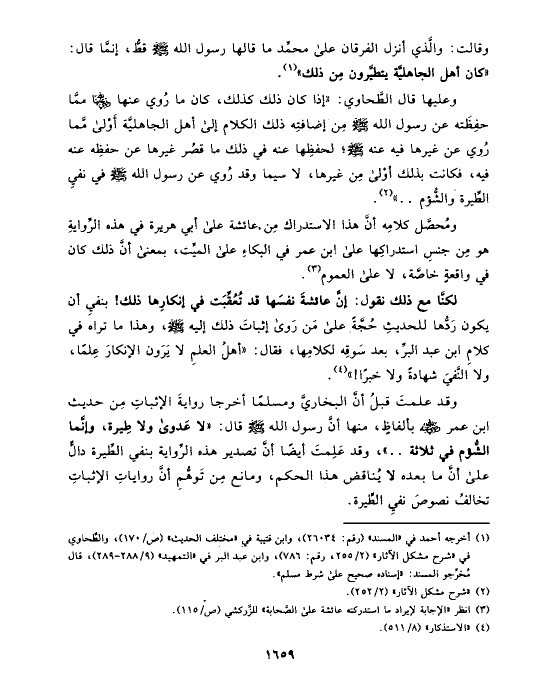 وقالت: والَّذي أنزل الفرقان علىٰ محمَّد ما قالها رسول الله ﷺ قطُّ، إنمَّا قال:
«كان أهل الجاهليَّة يتطيَّرون مِن ذلك»(١).
وعليها قال الطَّحاوي: «إذا كان ذلك كذلك، كان ما رُوي عنها ﷺ ممَّا
حفِظَته عن رسول الله ﷺ مِن إضافتِه ذلك الكلام إلىٰ أهل الجاهليَّة أَوْلىٰ مَّما
رُوي عن غيرها فيه عنه ﷺ؛ لحفظِها عنه في ذلك ما قصُر غيرها عن حفظِه عنه
فيه، فكانت بذلك أوْلىٰ مِن غيرها، لا سيما وقد رُوي عن رسول الله ﷺ في نفيِ
الطِّيرة والشُّؤم ..»(٢).
ومُحصَّل كلامِه أنَّ هذا الاستدراك مِن عائشة علىٰ أبي هريرة في هذه الرِّوايةِ
هو مِن جنسِ استدراكِها علىٰ ابن عمر في البكاءِ علىٰ الميِّت، بمعنىٰ أنَّ ذلك كان
في واقعةٍ خاصَّة، لا علىٰ العموم(٣).
لكنَّا مع ذلك نقول: إنَّ عائشةَ نفسَها قد تُعُقِّبَت في إنكارِها ذلك! بنفيِ أن
يكون رَدُّها للحديثِ حُجَّةً علىٰ مَن رَوىٰ إثباتَ ذلك إليه ﷺ، وهذا ما تراه في
كلامِ ابن عبد البرِّ، بعد سَوقِه لكلامِها، فقال: «أهلُ العلمِ لا يَرَون الإنكارَ عِلمًا،
ولا النَّفيَ شهادةً ولا خبرًا!»(٤).
وقد علمتَ قبلُ أنَّ البخاريَّ ومسلمًا أخرجا روايةَ الإثباتِ مِن حديث
ابن عمر ﷺ بألفاظٍ، منها أنَّ رسول الله ﷺ قال: «لا عَدوىٰ ولا طِيرة، وإنَّما
الشُّؤم في ثلاثة ..»، وقد عَلِمتَ أيضًا أنَّ تصدير هذه الرِّواية بنفي الطِّيرة دالٌّ
علىٰ أنَّ ما بعده لا يُناقض هذا الحكم، ومانع مِن تَوهُّم أنَّ رواياتِ الإثباتِ
تخالفُ نصوصَ نفيِ الطِّيرة.
(١) أخرجه أحمد في «المسند» (رقم: ٢٦٠٣٤)، وابن قتيبة في «مختلف الحديث» (ص/١٧٠)، والطَّحاوي
في «شرح مشكل الآثار» (٢/ ٢٥٥، رقم: ٧٨٦)، وابن عبد البر في «التمهيد» (٩/ ٢٨٨-٢٨٩)، قال
مُخرِّجو المسند: «إسناده صحيح علىٰ شرط مسلم».
(٢) «شرح مشكل الآثار» (٢/ ٢٥٢).
(٣) انظر «الإجابة لإيراد ما استدركته عائشة علىٰ الصَّحابة» للزَّركشي (ص/١١٥).
(٤) «الاستذكار» (٨/ ٥١١).
١٦٥٩